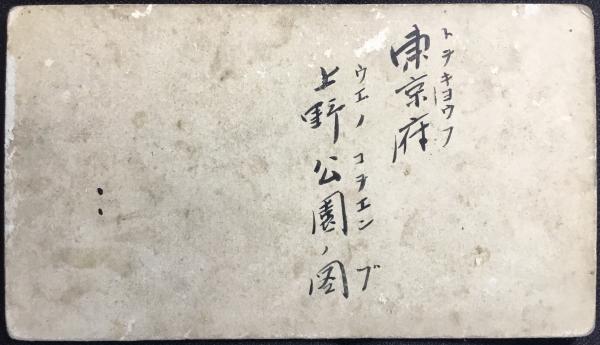 東京府
トヲキヨウフ
上野公園ノ図
ウエノコヲエンノブ